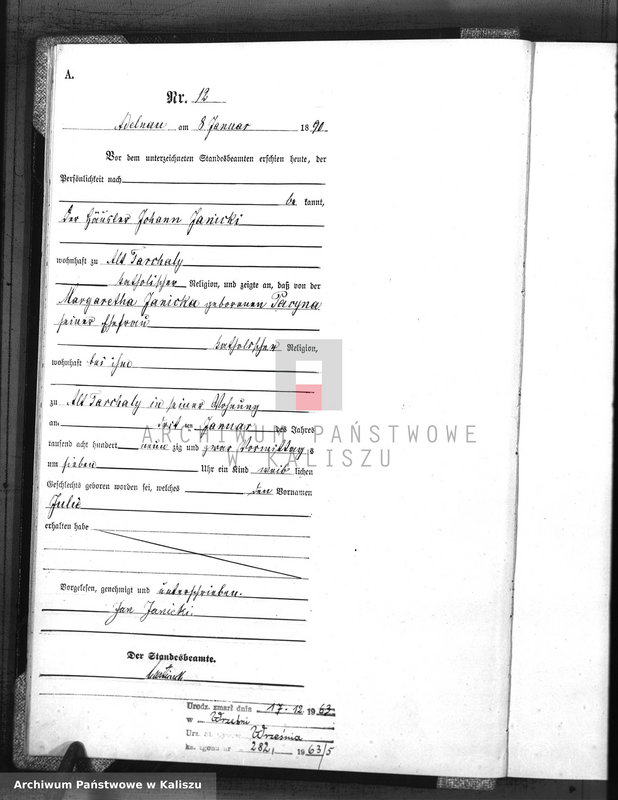 A.
Nr. 12
Adelnau am 8 Januar 1890.
Vor dem unterzeichneten Standesbeamten erschien heute, der
Persönlichkeit nach
be kannt,
der Häusler Johann Janicki
wohnhaft zu Alt Tarchaly
katholischer Religion, und zeigte an, daß von der
Margaretha Janicka geborenen Pacyna
seiner Ehefrau
katholischer Religion,
wohnhaft bei ihm
zu Alt Tarchaly in seiner Wohnung
am Januar des Jahres
tausend acht hundert neun zig und zwar Vormittags
um sieben Uhr ein Kind weib lichen
Geschlechts geboren worden sei, welches den Vornamen
Julie
erhalten habe
Vorgelesen, genehmigt und unterschrieben.
Jan Janicki.
Der Standesbeamte.
Urodz. zmarł dnia 17.12.1963
w Wrześni
Września
ks. zgonu nr 282, 1963/5
ARCHIWUM PAŃSTWOWE
W KALISZU
Archiwum Państwowe w Kaliszu